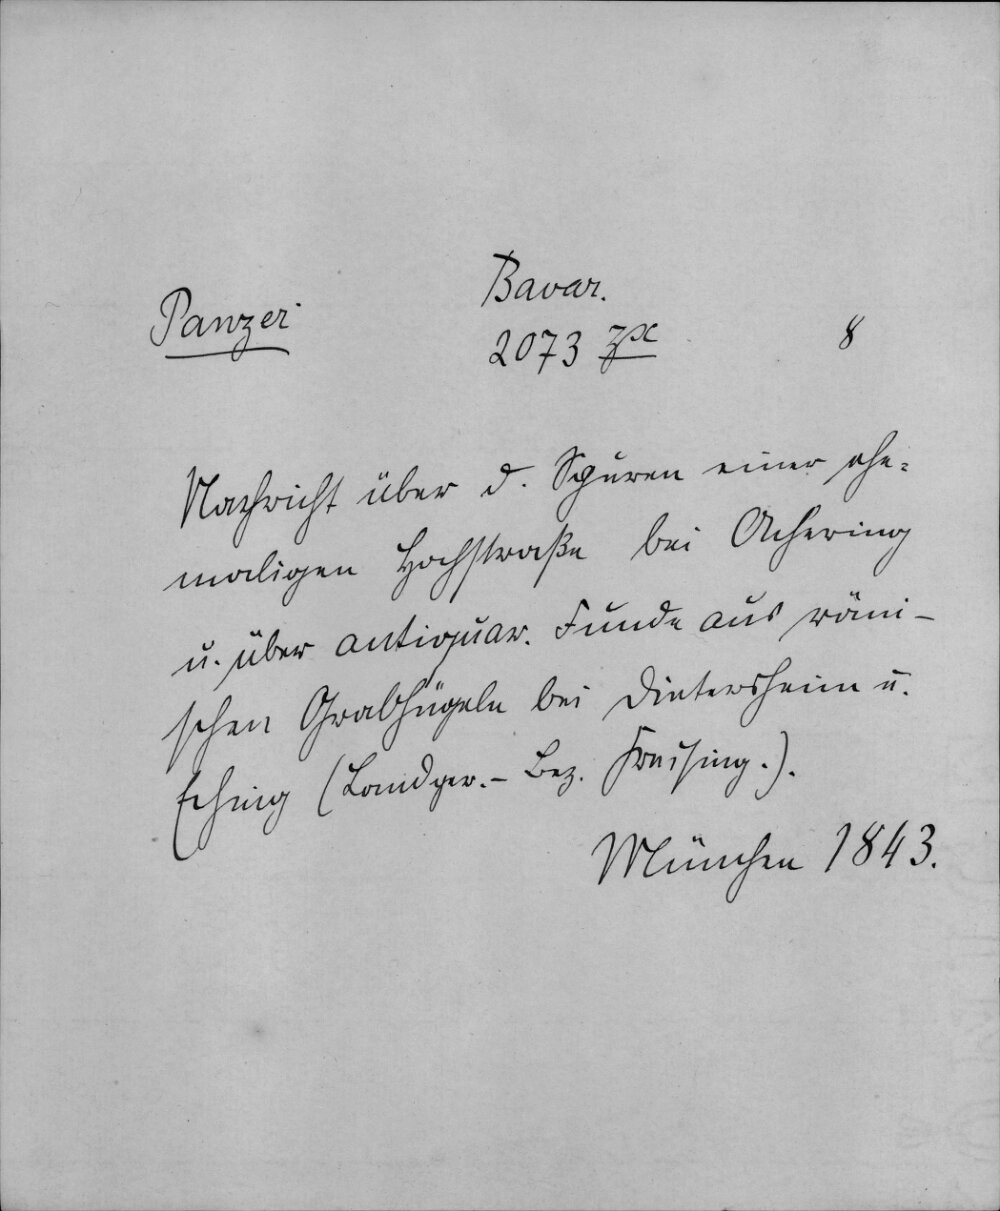 Bavar.
Panzer
2073 zx 8
Nachricht über d. Spuren einer ehe=
maligen Hochstraße bei Achering
u. über antiquar. Funde aus römi-
schen Grabhügeln bei Dietersheim u.
Eching (Landger.- Bez. Freising.).
München 1843.